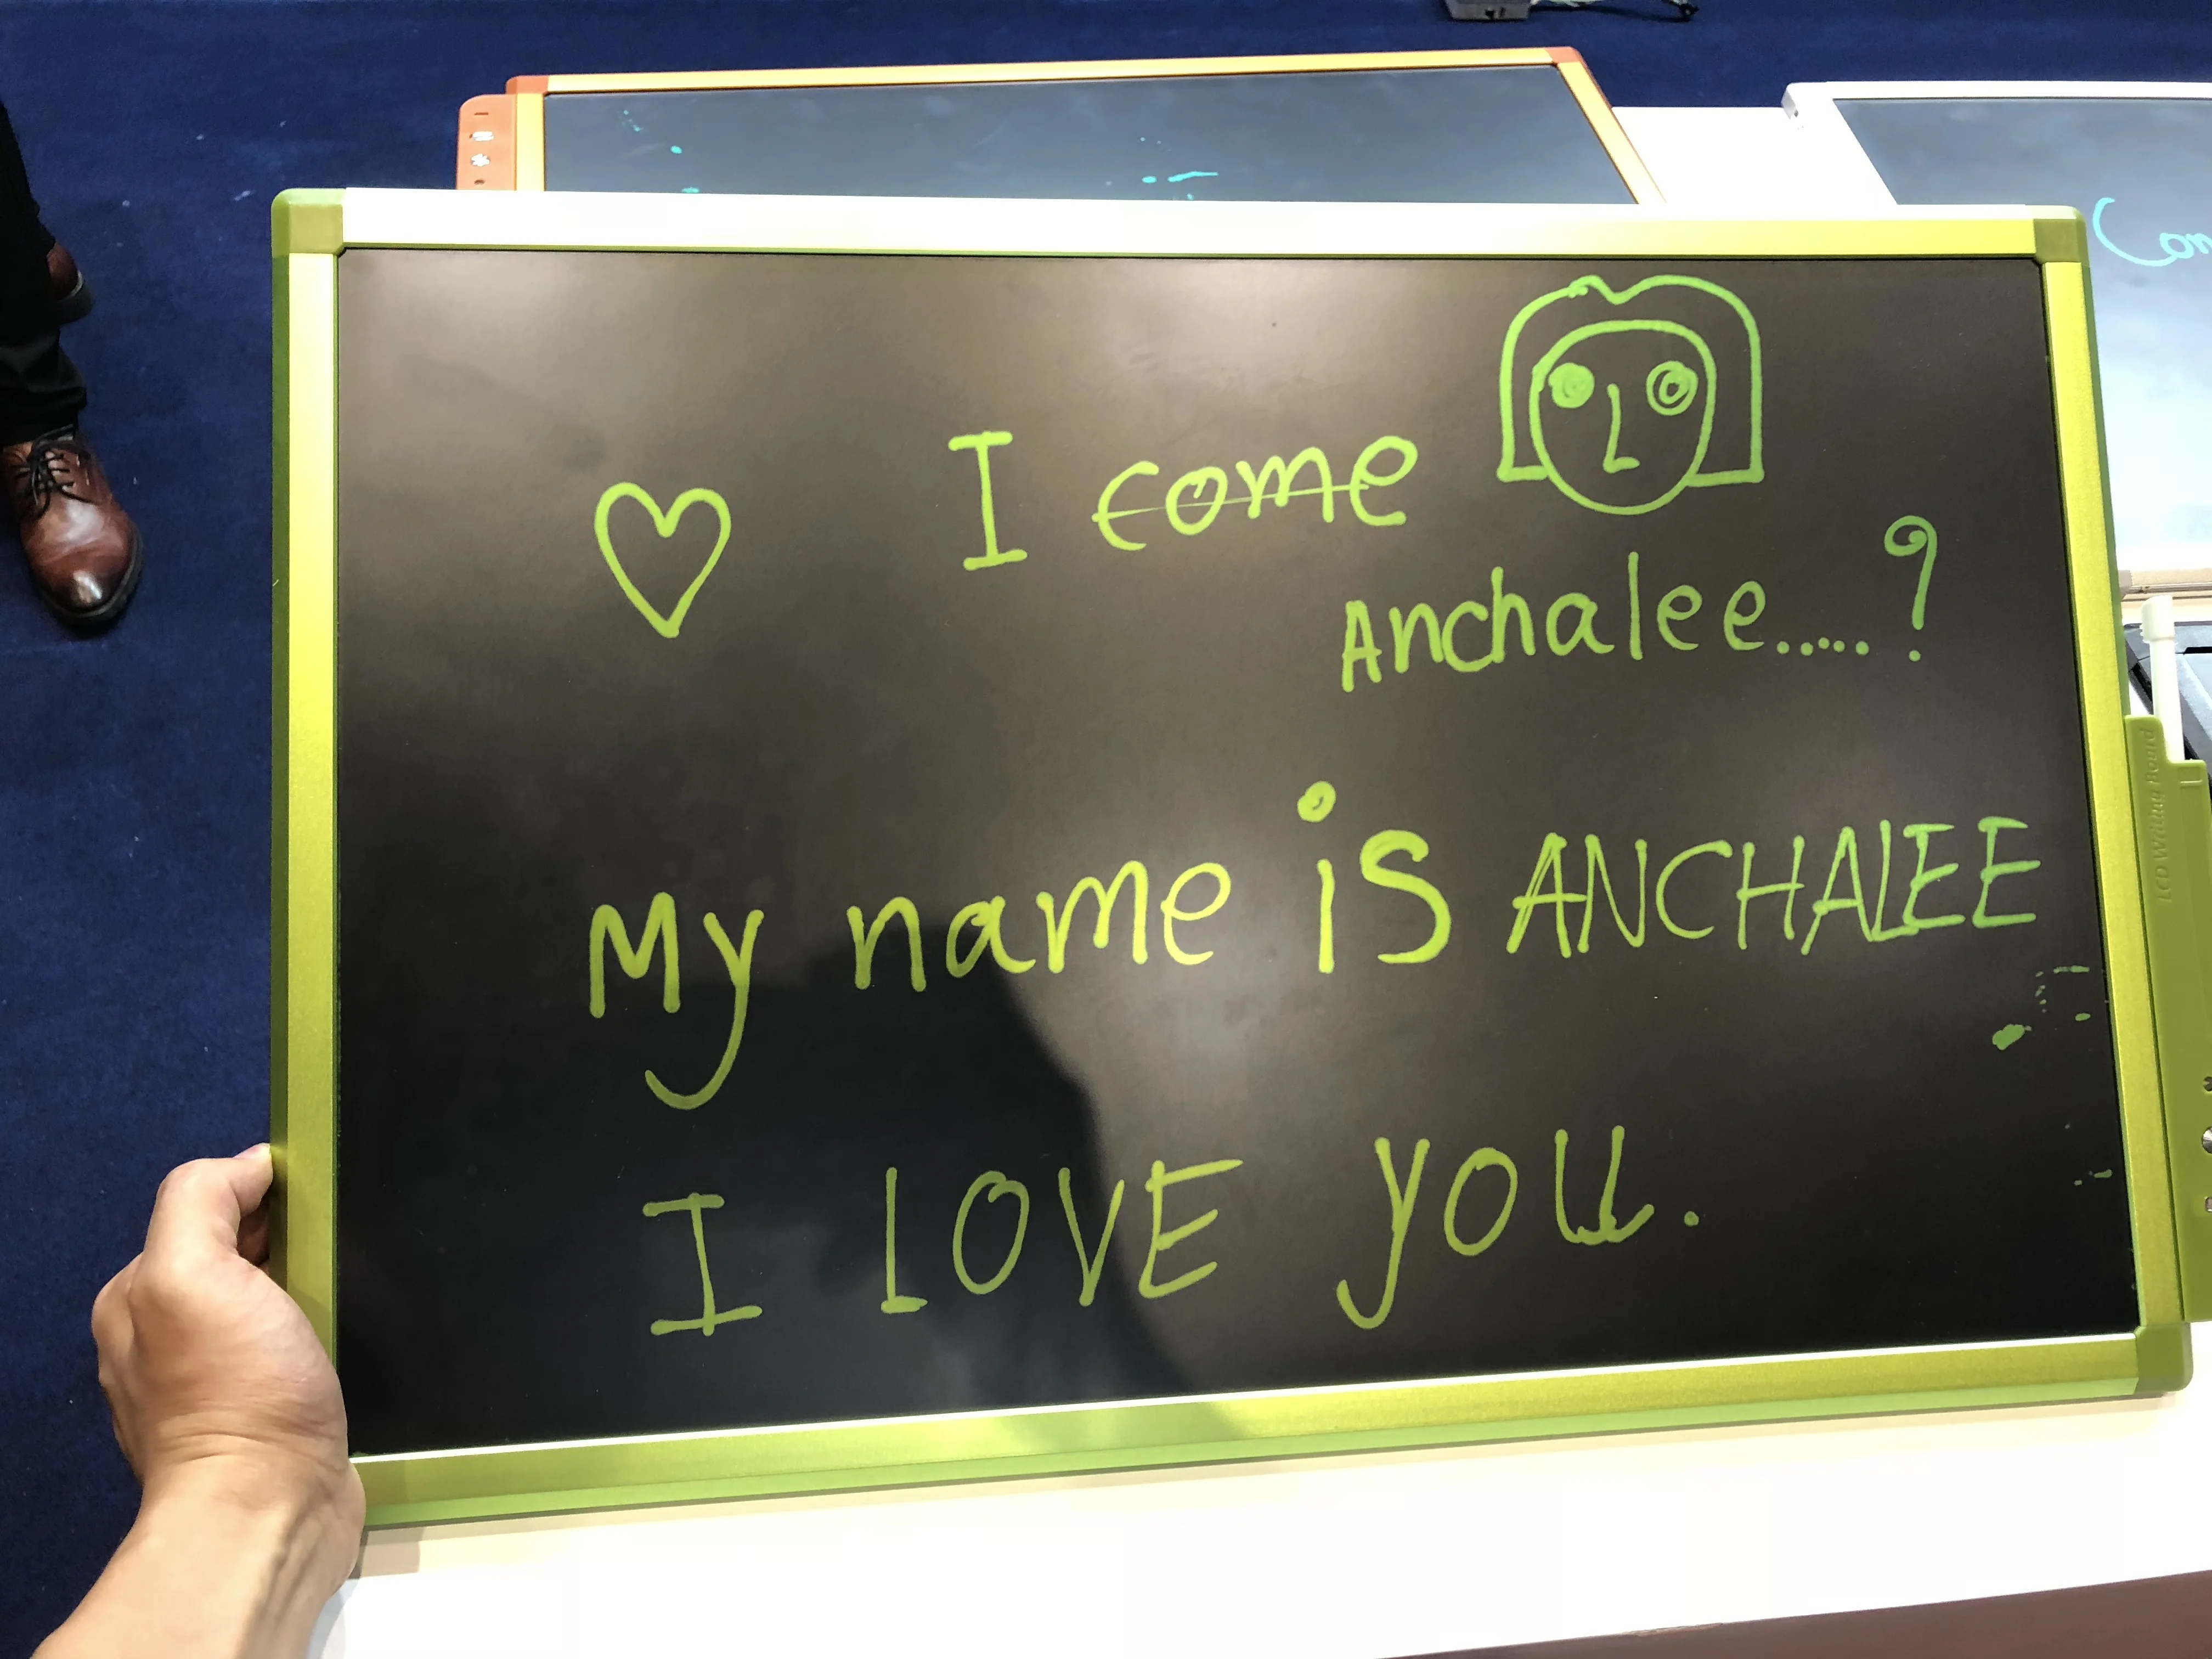 I come
Anchalee.....?
My name is ANCHALEE
I LOVE you.
LCD Writing Board
Con